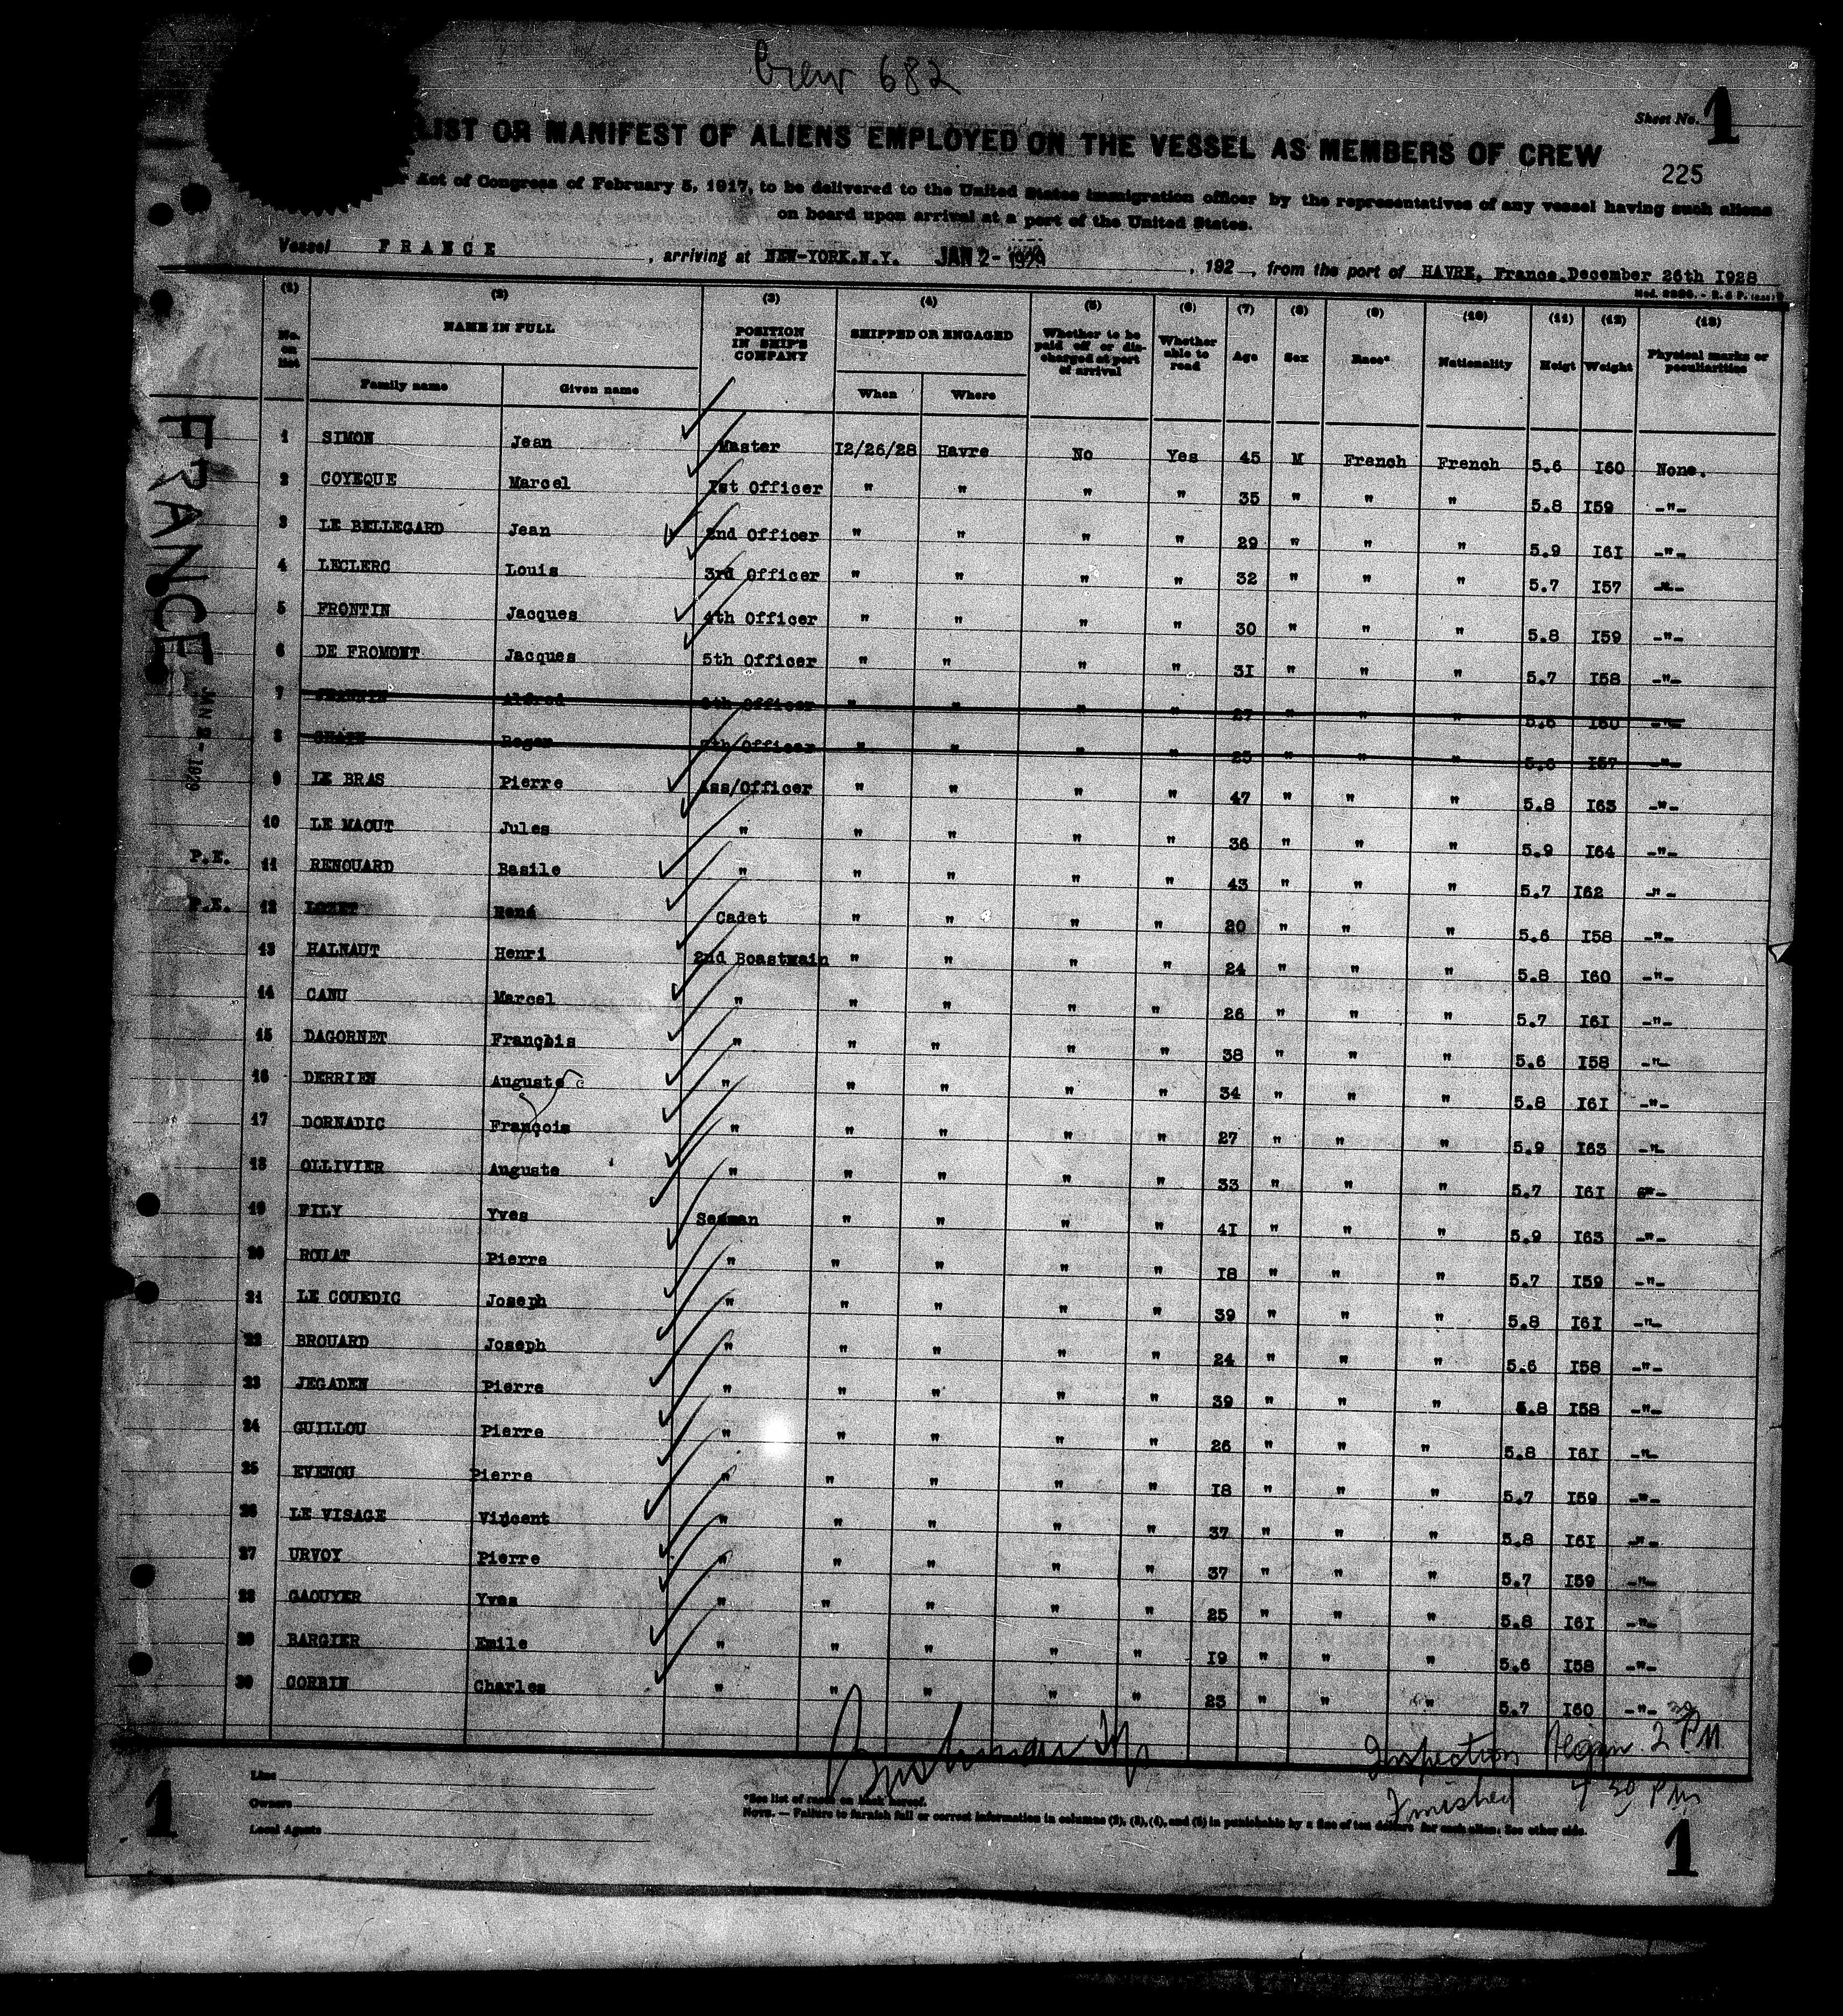 Crew 682
Sheet No. 1
LIST OR MANIFEST OF ALIENS EMPLOYED ON THE VESSEL AS MEMBERS OF CREW
225
Act of Congress of February 5, 1917, to be delivered to the United States immigration officer by the representatives of any vessel having such aliens
on board upon arrival at a port of the United States.
Vessel FRANCE, arriving at NEW-YORK.N.Y. JAN 2- 1929, 192 , from the port of HAVRE, France.December 26th I928
(1) (2) (3) (4) (5) (6) (7) (8) (9) (10) (11) (12) (13)
No. on list NAME IN FULL POSITION IN SHIP'S COMPANY SHIPPED OR ENGAGED Whether to be paid off or discharged at port of arrival Whether able to read Age Sex Race* Nationality Heigt Weight Physical marks or peculiarities
Family name Given name When Where
1 SIMON Jean Master I2/26/28 Havre No Yes 45 M French French 5.6 I60 None.
2 COYEQUE Marcel 1st Officer " " " " 35 " " " 5.8 I59 -"-
3 LE BELLEGARD Jean 2nd Officer " " " " 29 " " " 5.9 I6I -"-
4 LECLERC Louis 3rd Officer " " " " 32 " " " 5.7 I57 -"-
5 FRONTIN Jacques 4th Officer " " " " 30 " " " 5.8 I59 -"-
6 DE FROMONT Jacques 5th Officer " " " " 3I " " " 5.7 I58 -"-
7 Alfred 6th Officer " " " " 27 " " " 5.6 I60 -"-
8 Roger Officer " " " " 25 " " " 5.6 I57 -"-
9 LE BRAS Pierre Ass/Officer " " " " 47 " " " 5.8 I63 -"-
10 LE MAOUT Jules " " " " " 36 " " " 5.9 I64 -"-
P.E. 11 RENOUARD Basile " " " " " 43 " " " 5.7 I62 -"-
P.E. 12 René Cadet " " " " 20 " " " 5.6 I58 -"-
13 HALNAUT Henri 2nd Boastwain " " " " 24 " " " 5.8 I60 -"-
14 CANU Marcel " " " " " 26 " " " 5.7 I6I -"-
15 DAGORNET François " " " " " 38 " " " 5.6 I58 -"-
16 DERRIEN Auguste " " " " " 34 " " " 5.8 I6I -"-
17 DORNADIC François " " " " " 27 " " " 5.9 I63 -"-
18 OLLIVIER Auguste " " " " " 33 " " " 5.7 I6I -"-
19 FILY Yves Seaman " " " " 4I " " " 5.9 I63 -"-
20 ROUAT Pierre " " " " " I8 " " " 5.7 I59 -"-
21 LE COUEDIC Joseph " " " " " 39 " " " 5.8 I6I -"-
22 BROUARD Joseph " " " " " 24 " " " 5.6 I58 -"-
23 JEGADEN Pierre " " " " " 39 " " " 5.8 I58 -"-
24 GUILLOU Pierre " " " " " 26 " " " 5.8 I6I -"-
25 EVENOU Pierre " " " " " I8 " " " 5.7 I59 -"-
26 LE VISAGE Vincent " " " " " 37 " " " 5.8 I6I -"-
27 URVOY Pierre " " " " " 37 " " " 5.7 I59 -"-
28 GAOUYER Yves " " " " " 25 " " " 5.8 I6I -"-
29 BARGIER Emile " " " " " I9 " " " 5.6 I58 -"-
30 CORBIN Charles " " " " " 23 " " " 5.7 I60 -"-
FRANCE JAN 2- 1929
Inspection Began 2 PM
Finished 4 30 PM
Line
Owners
Local Agents
*See list of races on back hereof.
NOTE. — Failure to furnish full or correct information in columns (2), (3), (4), and (5) is punishable by a fine of ten dollars for each alien. See other side.
1
1